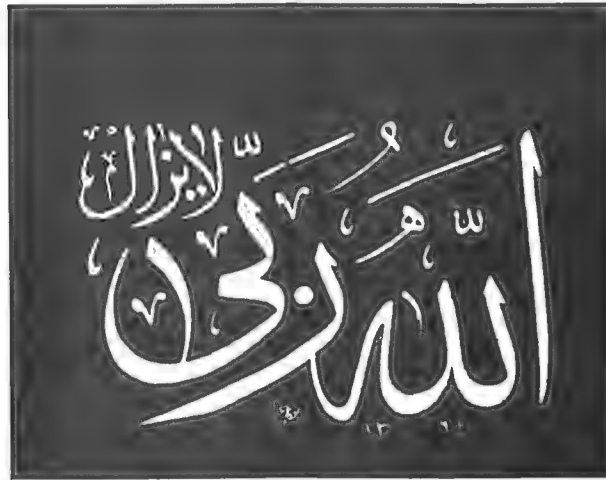 الله ربي
لا يزال